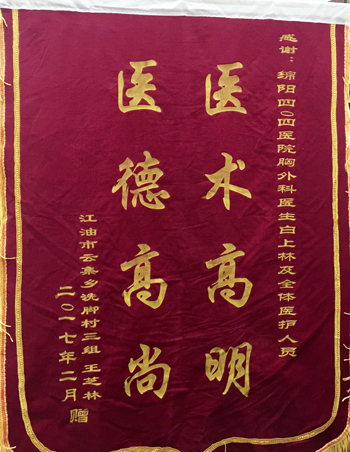 感谢：绵阳四〇四医院胸外科医生白上林及全体医护人员
医术高明
医德高尚
江油市云集乡洗脚村三组 王芝林
二〇一七年二月 赠